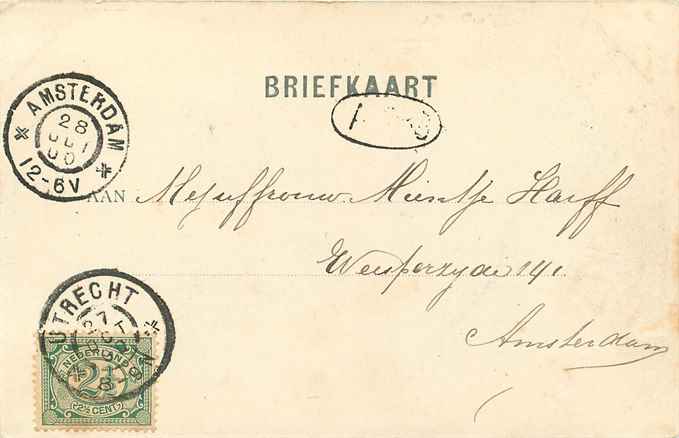 BRIEFKAART
AMSTERDAM
28
OCT
00
12-6V
AAN Mejuffrouw Mientje Harff
Weesperzijde 141.
Amsterdam
UTRECHT
27
OCT
NEDERLAND
2½
(2½ CENT)